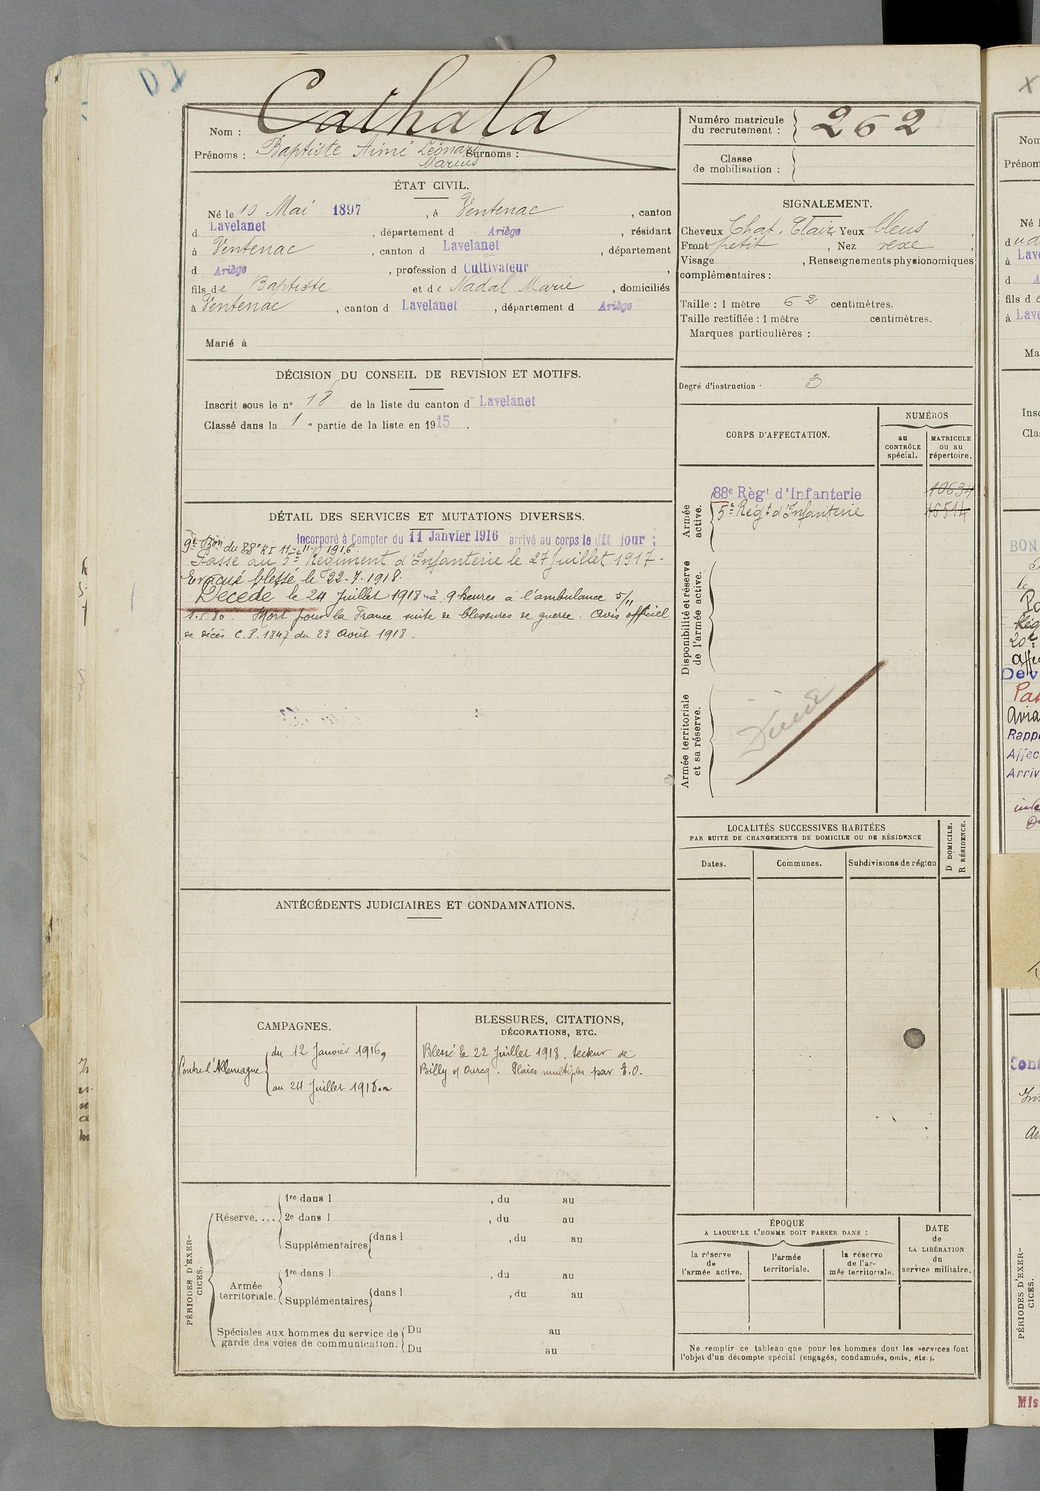 D2
Cathala
Nom :
Prénoms : Baptiste Aimé Léonard Surnoms :
Marius
ÉTAT CIVIL.
Né le 10 Mai 1897, à Ventenac, canton
d Lavelanet, département d Ariège, résidant
à Ventenac, canton d Lavelanet, département
d Ariège, profession d Cultivateur,
fils de Baptiste et de Nadal Marie, domiciliés
à Ventenac, canton d Lavelanet, département d Ariège
Marié à
DÉCISION DU CONSEIL DE REVISION ET MOTIFS.
Inscrit sous le n° 18 de la liste du canton d Lavelanet
Classé dans la 1e partie de la liste en 1915.
DÉTAIL DES SERVICES ET MUTATIONS DIVERSES.
Incorporé à Compter du 11 Janvier 1916 arrivé au corps le dit jour ;
9e Bon du 88e RI 11-11-1916
Passé au 5e Régiment d'Infanterie le 27 Juillet 1917-
Evacué blessé le 22-7-1918.
Décédé le 24 Juillet 1918 à 9 heures à l'ambulance 5/11
Mort pour la France suite de blessures de guerre. Avis officiel
de décès C.P. 1847 du 23 Août 1918.
ANTÉCÉDENTS JUDICIAIRES ET CONDAMNATIONS.
CAMPAGNES.
Contre l'Allemagne
du 12 Janvier 1916
au 24 Juillet 1918
BLESSURES, CITATIONS,
DÉCORATIONS, ETC.
Blessé le 22 Juillet 1918, secteur de
Billy s/ Ourcq. Plaies multiples par E.O.
PÉRIODES D'EXERCICES.
Réserve....
1re dans l , du au
2e dans l , du au
Supplémentaires dans l , du au
Armée territoriale.
1re dans l , du au
Supplémentaires dans l , du au
Spéciales aux hommes du service de
garde des voies de communication.
Du au
Du au
Numéro matricule
du recrutement : 262
Classe
de mobilisation :
SIGNALEMENT.
Cheveux Chat. Clair Yeux bleus,
Front petit, Nez rexe,
Visage , Renseignements physionomiques
complémentaires :
Taille : 1 mètre 62 centimètres.
Taille rectifiée : 1 mètre centimètres.
Marques particulières :
Degré d'instruction : 3
CORPS D'AFFECTATION.
NUMÉROS
au
CONTRÔLE
spécial.
MATRICULE
ou au
répertoire.
Armée
active.
88e Règt d'Infanterie
5e Régt d'Infanterie
Disponibilité et réserve
de l'armée active.
Armée territoriale
et sa réserve.
LOCALITÉS SUCCESSIVES HABITÉES
PAR SUITE DE CHANGEMENTS DE DOMICILE OU DE RÉSIDENCE
Dates.
Communes.
Subdivisions de région
D DOMICILE.
R RÉSIDENCE.
ÉPOQUE
A LAQUELLE L'HOMME DOIT PASSER DANS :
la réserve
de
l'armée active.
l'armée
territoriale.
la réserve
de l'ar-
mée territoriale.
DATE
de
LA LIBÉRATION
du
service militaire.
Ne remplir ce tableau que pour les hommes dont les services font
l'objet d'un décompte spécial (engagés, condamnés, omis, etc.).